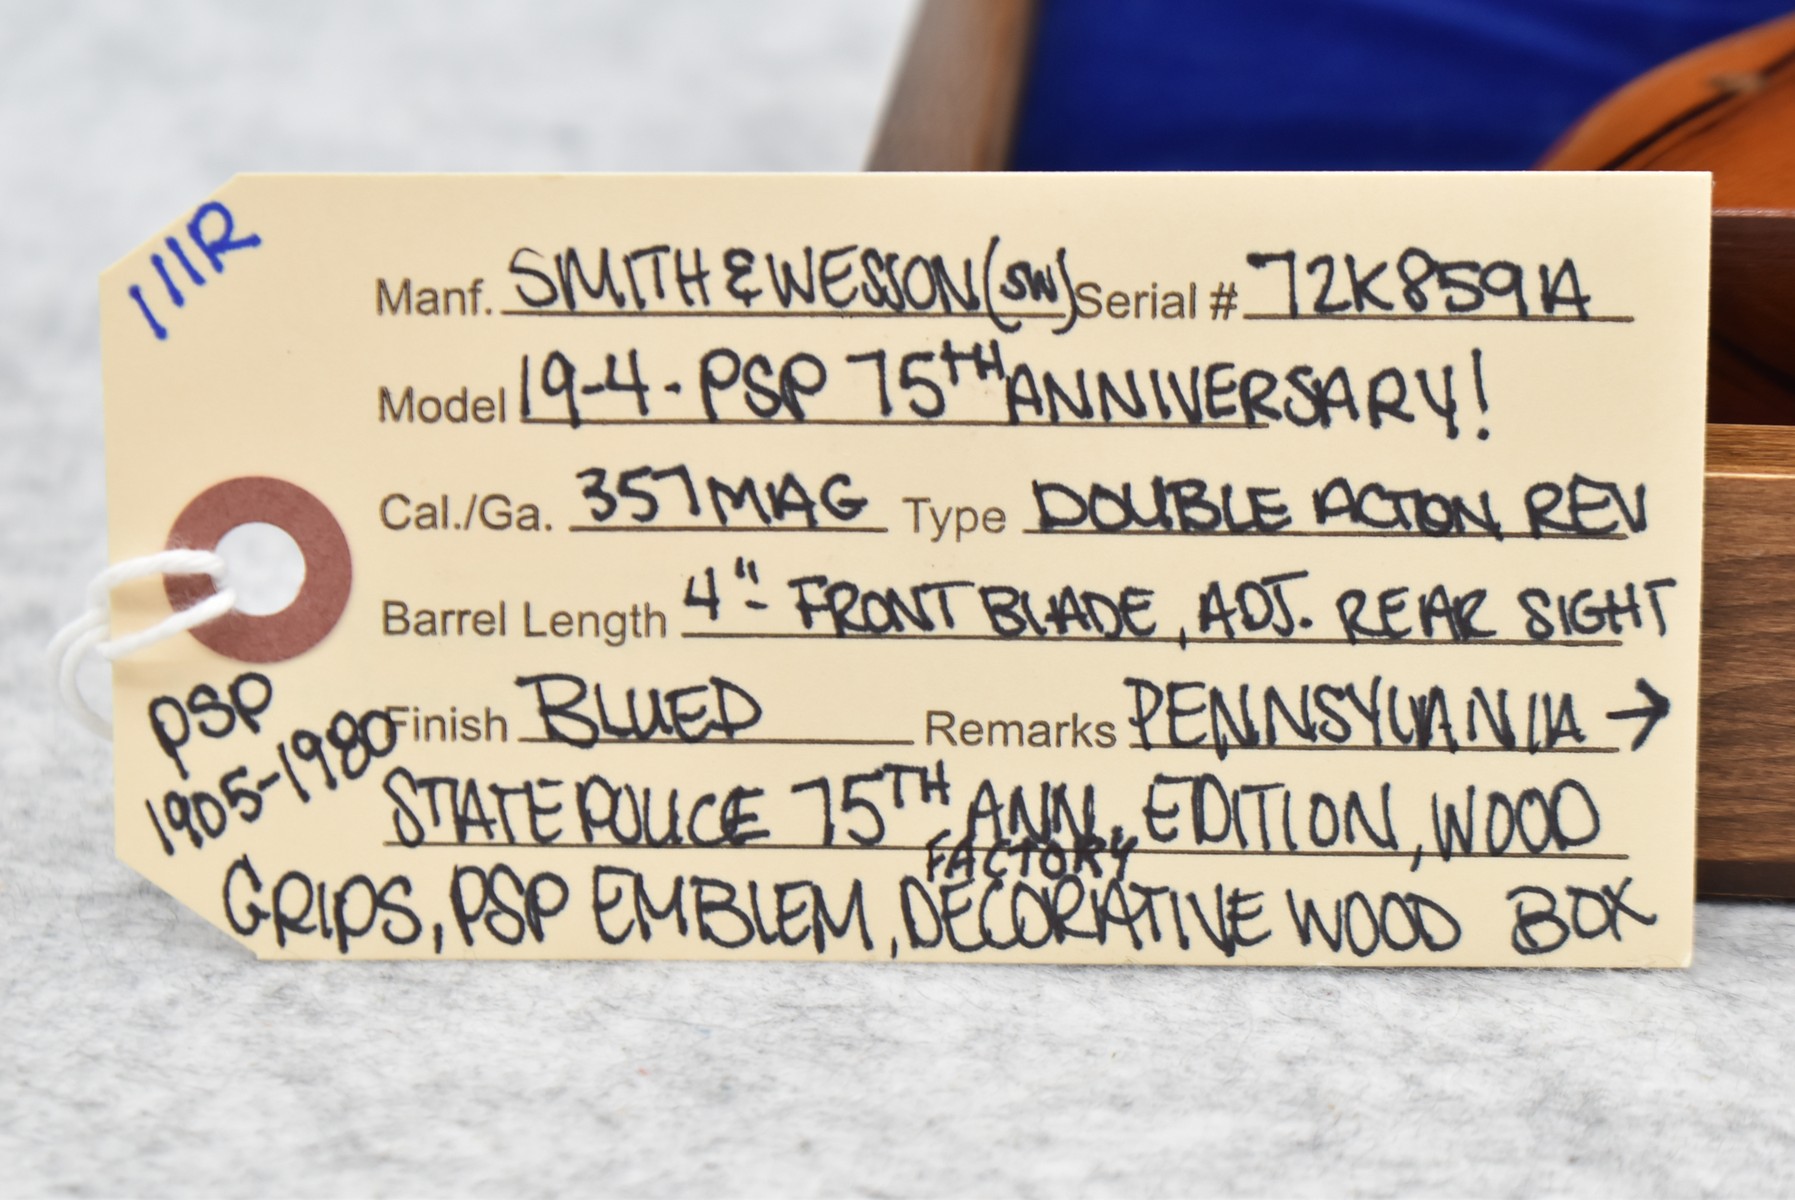 111R
Manf. SMITH & WESSON (SW) Serial # 72K8591A
Model 19-4 - PSP 75TH ANNIVERSARY!
Cal./Ga. 357 MAG Type DOUBLE ACTION REV
Barrel Length 4" - FRONT BLADE, ADJ. REAR SIGHT
Finish BLUED Remarks PENNSYLVANIA →
PSP
1905-1980
STATE POLICE 75TH ANN. EDITION, WOOD
FACTORY
GRIPS, PSP EMBLEM, DECORATIVE WOOD BOX